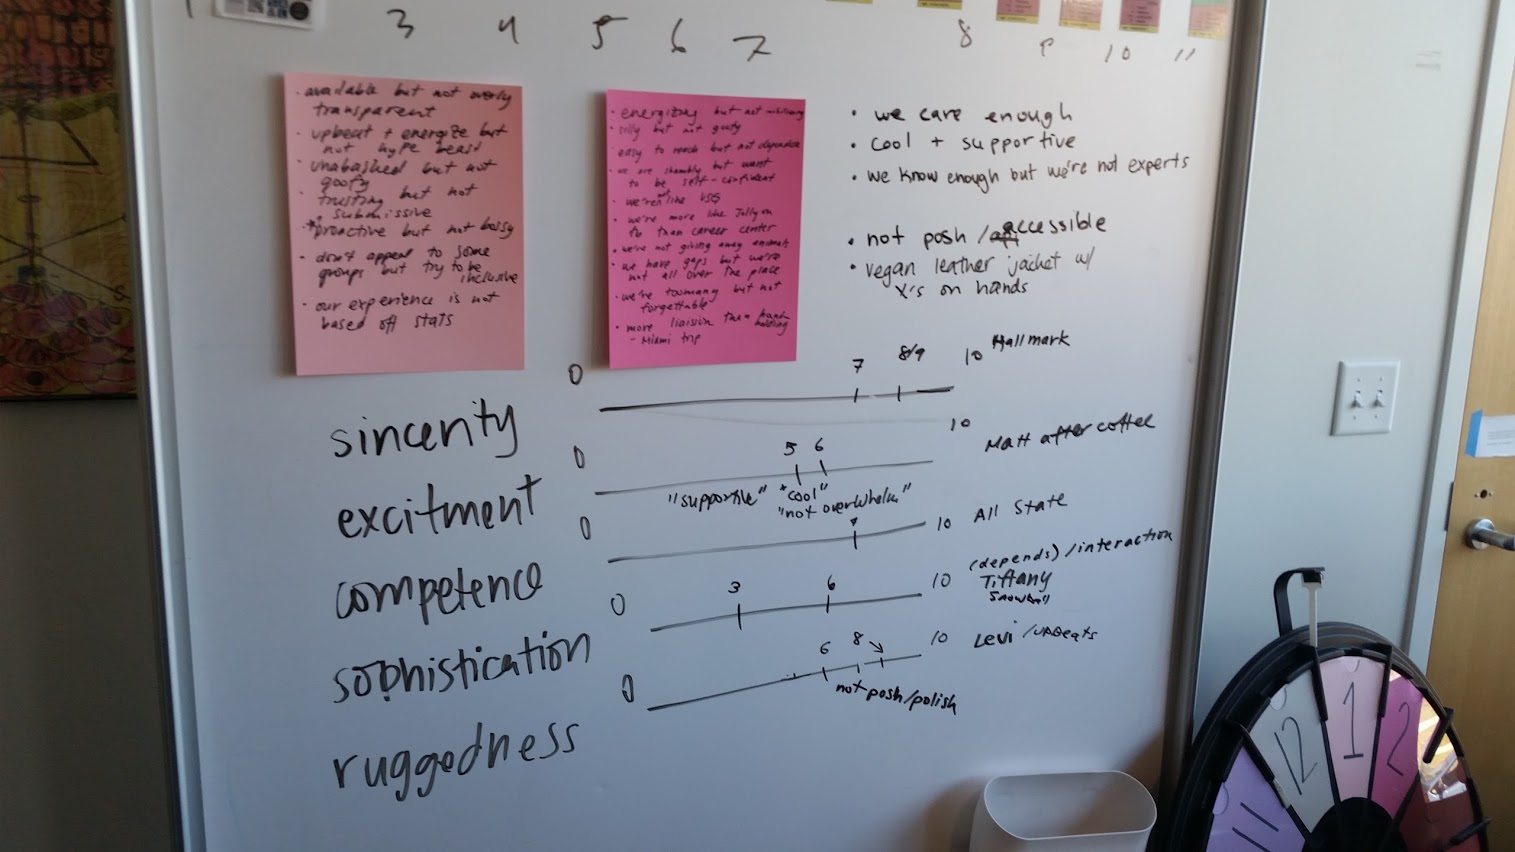 3 4 5 6 7 8 9 10 11
· available but not overly
transparent
· upbeat + energize but
not hype beast
· unabashed but not
goofy
· trusting but not
submissive
· proactive but not bossy
· don't appeal to some
groups but try to be
inclusive
· our experience is not
based off stats
· energizing but not
· silly but not goofy
· easy to reach but not dependence
· we are but want
to be self-confident
· we're not like
· we're more like
to than career center
· we're not giving away animals
· we have gaps but we're
not all over the place
· we're toomany but not
forgettable
· more liaision than hand
holding
- Miami trip
• we care enough
• cool + supportive
• we know enough but we're not experts
• not posh / accessible
• vegan leather jacket w/
X's on hands
sincerity
0 7 8/9 10 Hallmark
excitment
0 5 6 10 Matt after coffee
"supportive" + "cool"
"not overwhelm"
competence
0 7 10 All State
sophistication
0 3 6 10 (depends) / interaction
Tiffany
ruggedness
0 6 8 10 Levi / UpBeats
not posh/polish
11 12 1 2